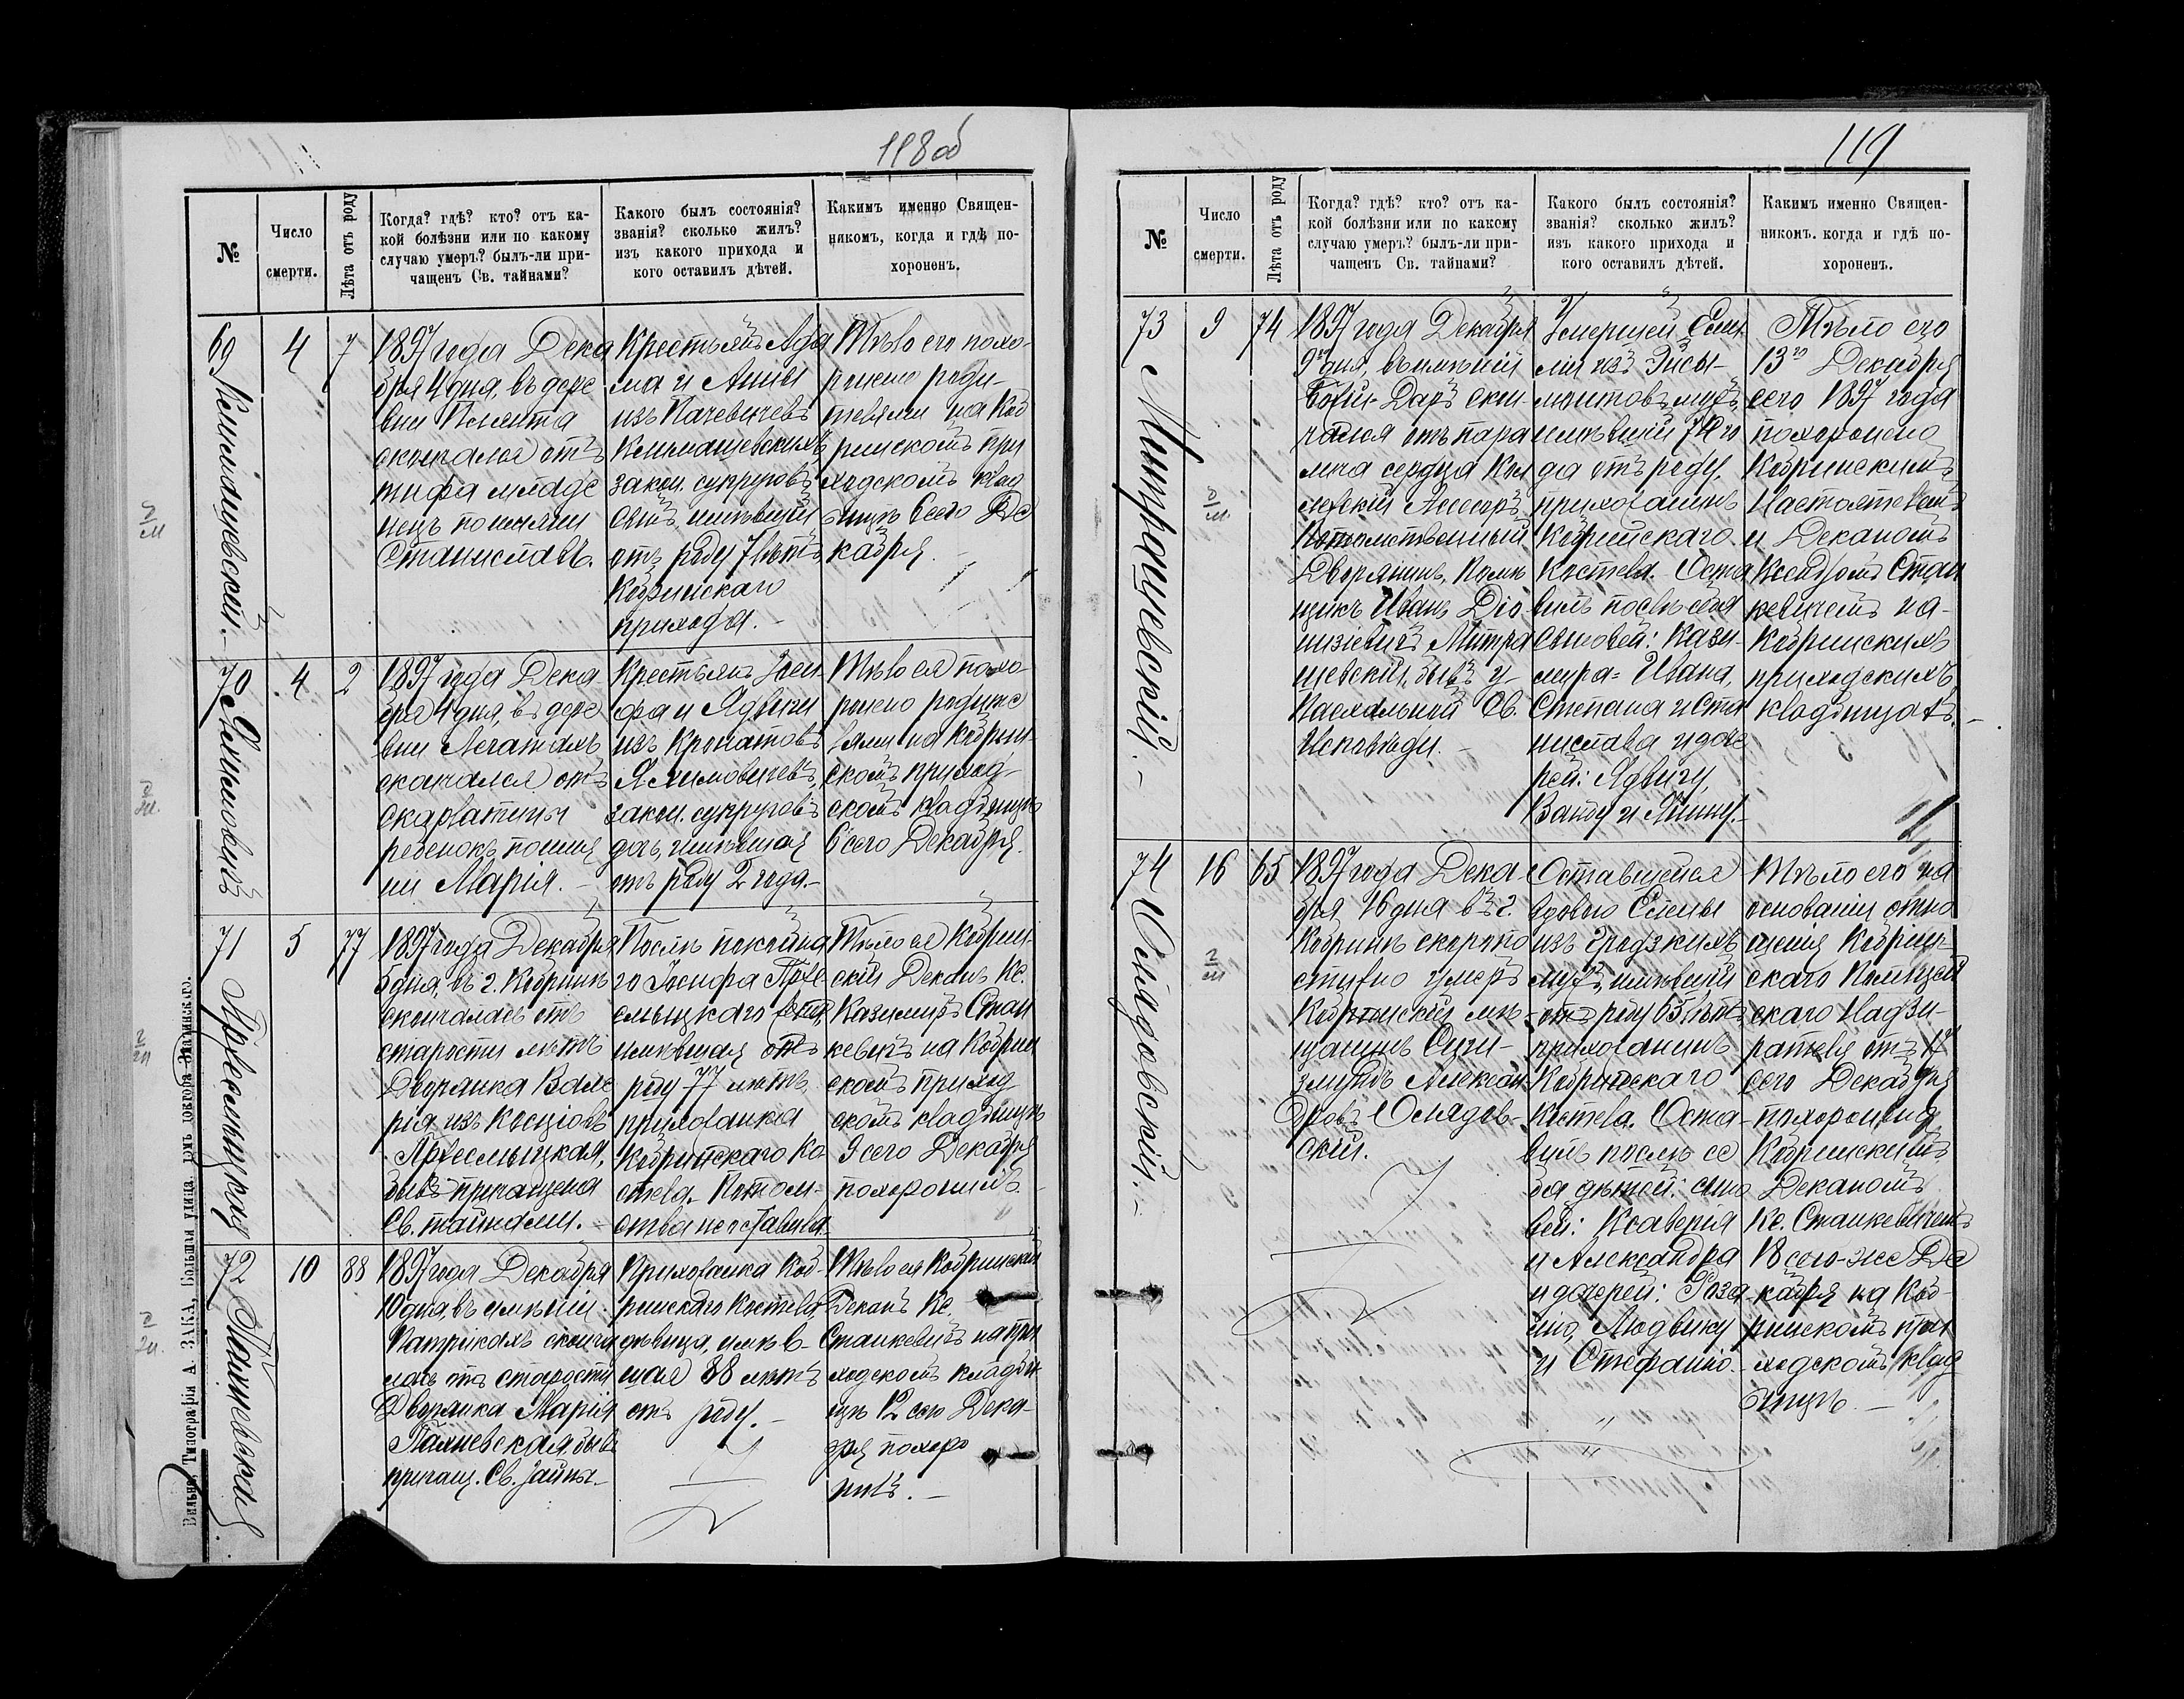 118 об
№
Число
смерти.
Лѣта отъ роду
Когда? гдѣ? кто? отъ ка-
кой болѣзни или по какому
случаю умеръ? былъ-ли при-
чащенъ Св. тайнами?
Какого былъ состоянія?
званія? сколько жилъ?
изъ какого прихода и
кого оставилъ дѣтей.
Какимъ именно Священ-
никомъ, когда и гдѣ по-
хороненъ.
69
4
7
1897 года Дека
бря 4 дня, въ дере
вни
скончался отъ
тифа младе
нецъ по имени
Станиславъ.
Крестьянъ Ада
ма и Анны
изъ
законн. супруговъ
сынъ, имѣвшій
отъ роду 7 лѣтъ,
Кобринскаго
прихода.
Тѣло его похо-
ронено роди-
телями на Коб
ринскомъ при
ходскомъ клад
бищѣ 6 сего Де
кабря.
70
Якимовичъ
4
2
1897 года Дека
бря 4 дня, въ дере
вни
скончался отъ
скарлатины
ребенокъ по име
ни Марія.
Крестьянъ Іоси
фа и Ядвиги
изъ
Якимовичевъ
закон. супруговъ
дочь, имѣвшая
отъ роду 2 года.
Тѣло ея похо-
ронено родите
лями на Кобрин-
скомъ приход-
скомъ кладбищѣ
6 сего Декабря.
71
5
77
1897 года Декабря
5 дня, въ г. Кобринѣ
скончалась отъ
старости лѣтъ
Дворянка Вале
рія изъ
бывъ причащена
Св. тайнами.
Послѣ покойна
го Іосифа
имѣвшая отъ
роду 77 лѣтъ
прихожанка
Кобринскаго Ко
стела. Потом-
ства не оставила.
Тѣло ея Кобрин-
скій Деканъ Кс.
Казимиръ Стан
кевичъ на Кобрин
скомъ приход
скомъ кладбищѣ
9 сего Декабря
похоронилъ.
72
10
88
1897 года Декабря
10 дня, въ имѣніи
Патрикахъ сконча
лась отъ старости
Дворянка Марія
бывъ
причащ. Св. Тайны
Прихожанка Коб-
ринскаго Костела
дѣвица, имѣв-
шая 88 лѣтъ
отъ роду.
Тѣло ея Кобринскій
Деканъ Кс.
Станкевичъ на при
ходскомъ кладби
щѣ 12 сего Дека-
бря похоро
нилъ.
Вильна, Типографія А. ЗАКА, Большая улица, домъ доктора
119
№
Число
смерти.
Лѣта отъ роду
Когда? гдѣ? кто? отъ ка-
кой болѣзни или по какому
случаю умеръ? былъ-ли при-
чащенъ Св. тайнами?
Какого былъ состоянія?
званія? сколько жилъ?
изъ какого прихода и
кого оставилъ дѣтей.
Какимъ именно Священ-
никомъ. когда и гдѣ по-
хороненъ.
73
Митрашевскій.
9
74
1897 года Декабря
9го дня, въ имѣніи
Божій-Даръ скон
чался отъ пара
лича сердца Кол
лежскій Асессоръ
Потомственный
Дворянинъ, Помѣ
щикъ Иванъ Діо
низіевичъ Митра
шевскій, бывъ у
Пасхальной Св.
Исповѣди.
Умершей Еми
ліи изъ
мужъ,
имѣвшій 74 го
да отъ роду,
прихожанинъ
Кобринскаго
Костела. Оста
вилъ послѣ себя
сыновей: Кази-
мира-Ивана,
Степана и Ста
нислава и доче
рей: Ядвигу,
Ванду и Янину.
Тѣло его
13го Декабря
сего 1897 года
похоронено
Кобринскимъ
Настоятелемъ
и Деканомъ
Ксендзомъ Стан
кевичемъ на
Кобринскихъ
приходскихъ
кладбищахъ.
74
16
65
1897 года Дека-
бря 16 дня въ г.
Кобринѣ скоропо
стижно умеръ
Кобринскій мѣ-
щанинъ Сиги-
змундъ Алексан
дровъ
скій.
Оставшейся
вдовою Елены
изъ
мужъ, имѣвшій
отъ роду 65 лѣтъ,
прихожанинъ
Кобринскаго
Костела. Оста-
вилъ послѣ се
бя дѣтей: сыно
вей: Ксаверія
и Александра
и дочерей: Роза
лію, Людвику
и Стефанію.
Тѣло его на
основаніи отно
шенія Кобрин-
скаго Полицей
скаго Надзи-
рателя отъ 17
сего Декабря
похоронено
Кобринскимъ
Деканомъ
Кс. Станкевичемъ
18 сего-же Де
кабря на Коб-
ринскомъ при
ходскомъ клад
бищѣ.